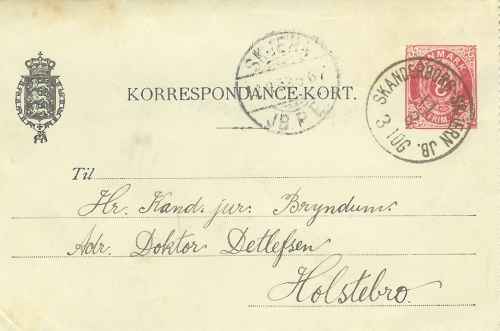 SKJERN
JB P.E.
DANMARK
SKANDERBORG-SKJERN JB.
KORRESPONDANCE-KORT.
Til
Hr. Kand. jur. Bryndum.
Adr. Doktor Detlefsen
Holstebro.